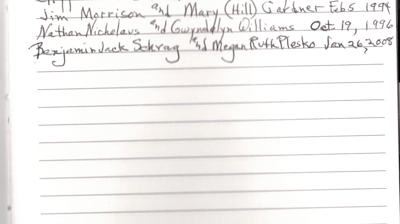 Jim Morrison and Mary (Hill) Gardner Feb 5 1994
Nathan Nichelaus and Gwyndolyn Williams Oct 19, 1996
Benjamin Jack Schrag and Megan Ruth Plesko Jan 26, 2008